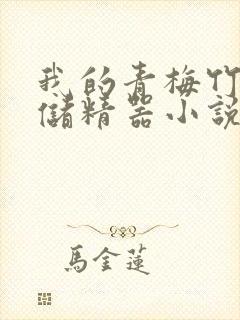 我的青梅竹
儲精器小說
馬金蓮